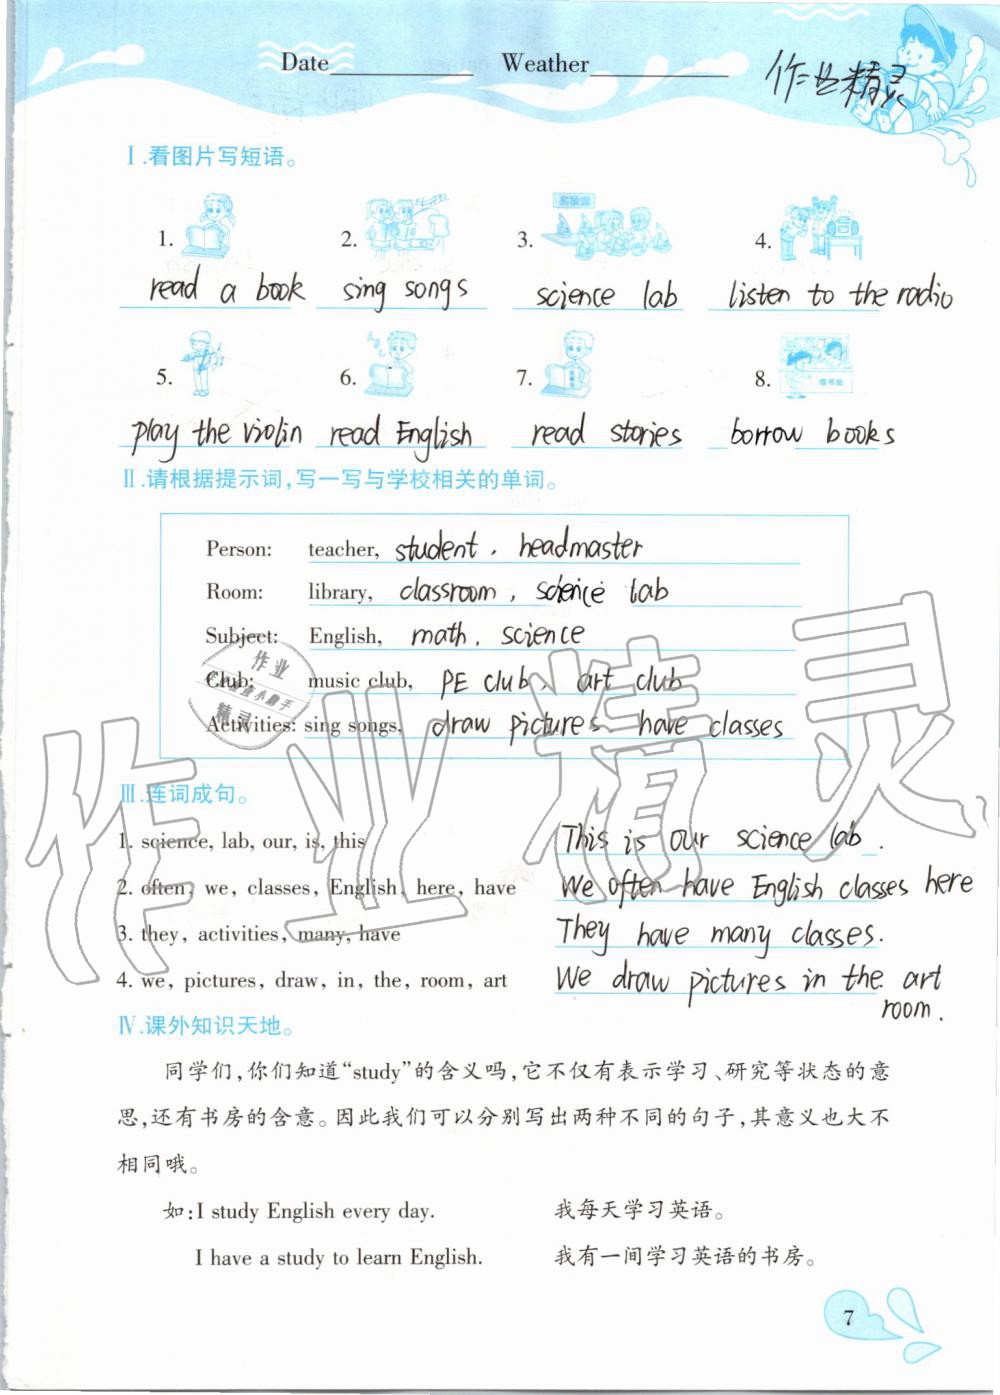 Date__________ Weather__________
作业精灵
Ⅰ.看图片写短语。
实验室
1. 2. 3. 4.
read a book sing songs science lab listen to the radio
5. 6. 7. 8.
借书处
play the violin read English read stories borrow books
Ⅱ.请根据提示词,写一写与学校相关的单词。
Person: teacher, student , headmaster
Room: library, classroom , science lab
Subject: English, math , science
Club: music club, PE club 、 art club
Activities: sing songs, draw pictures have classes
作业
精灵
Ⅲ.连词成句。
1. science, lab, our, is, this This is our science lab .
2. often, we, classes, English, here, have We often have English classes here
3. they, activities, many, have They have many classes.
4. we, pictures, draw, in, the, room, art We draw pictures in the art
room.
作业精灵
Ⅳ.课外知识天地。
同学们,你们知道“study”的含义吗,它不仅有表示学习、研究等状态的意
思,还有书房的含意。因此我们可以分别写出两种不同的句子,其意义也大不
相同哦。
如:I study English every day. 我每天学习英语。
I have a study to learn English. 我有一间学习英语的书房。
7